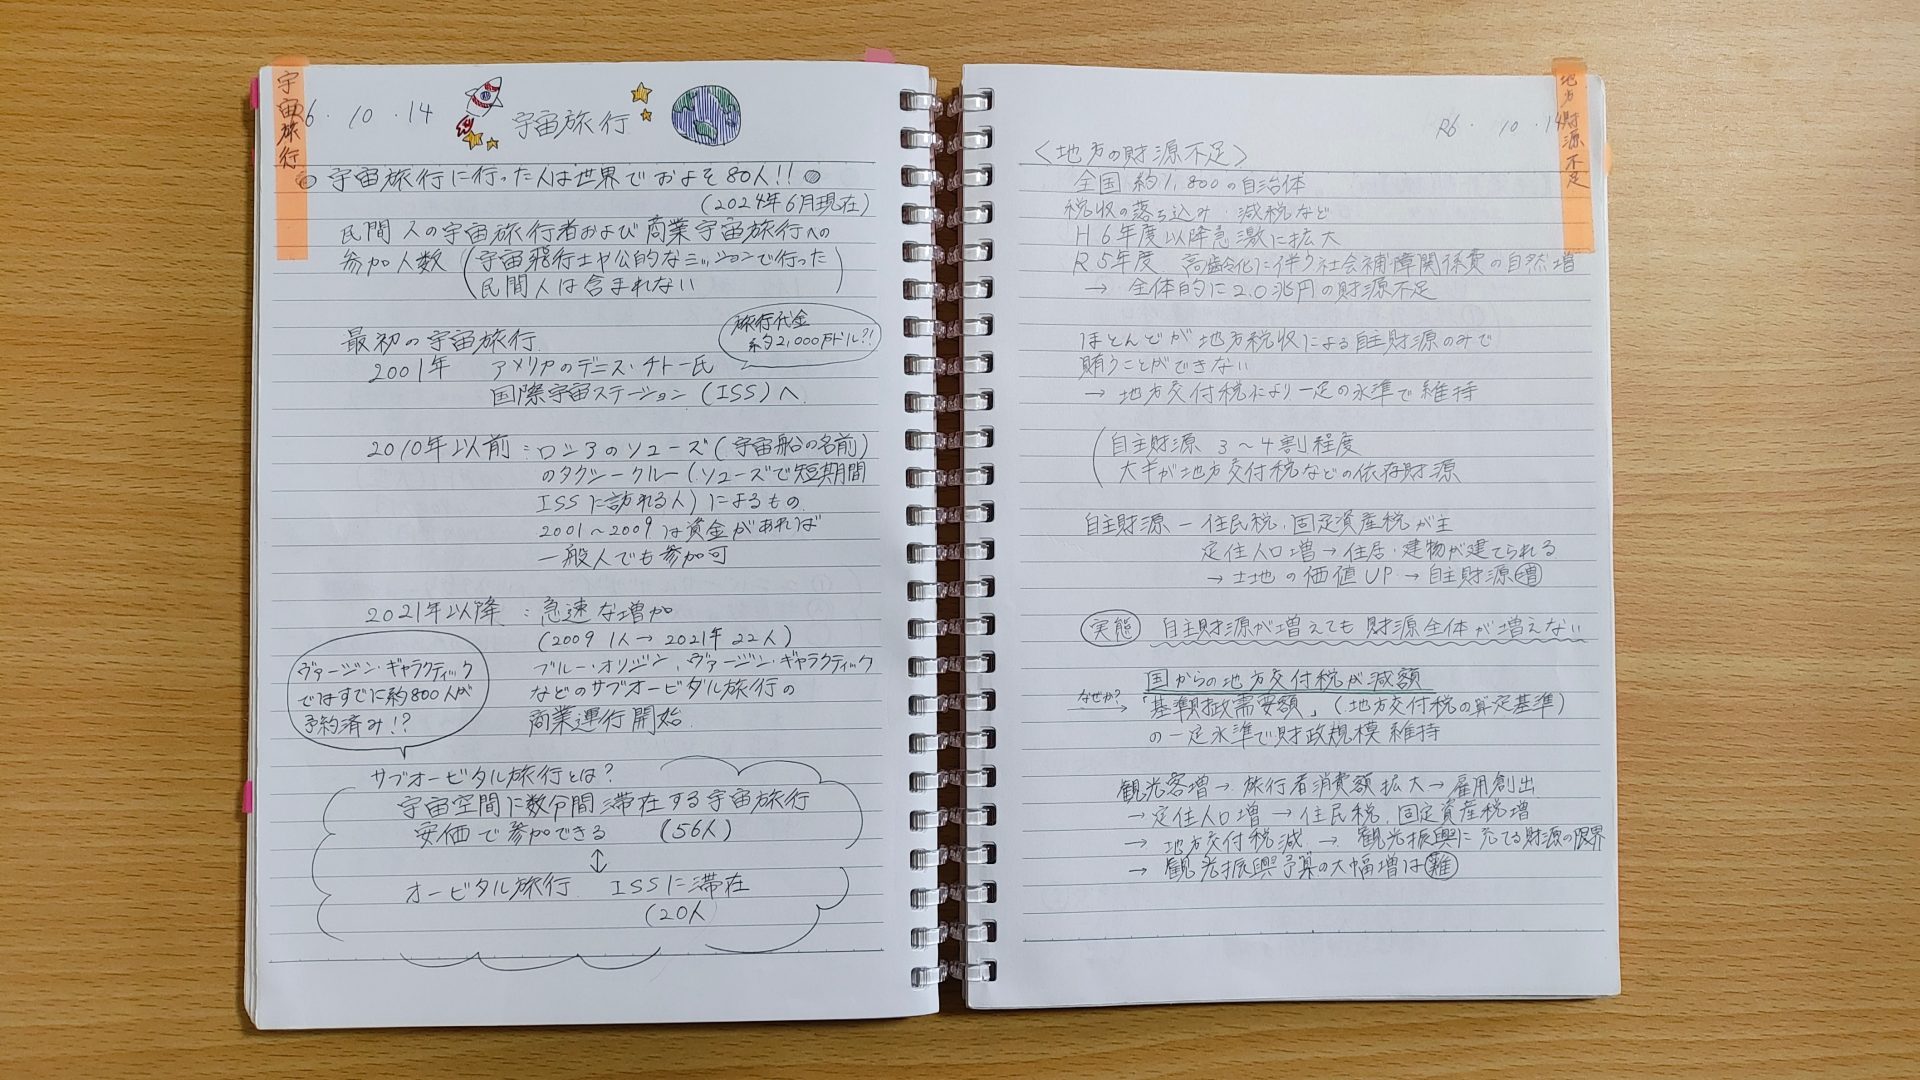 宇宙旅行
6.10.14
宇宙旅行
宇宙旅行に行った人は世界でおよそ80人!!
(2024年6月現在)
民間人の宇宙旅行者および商業宇宙旅行への
参加人数(宇宙飛行士や公的なミッションで行った
民間人は含まれない)
旅行代金
約2,000万ドル?!
最初の宇宙旅行
2001年 アメリカのデニス・チトー氏
国際宇宙ステーション(ISS)へ
2010年以前:ロシアのソユーズ(宇宙船の名前)
のタクシークルー(ソユーズで短期間
ISSに訪れる人)によるもの
2001~2009は資金があれば
一般人でも参加可
2021年以降:急速な増加
(2009 1人→2021年 22人)
ブルー・オリジン、ヴァージン・ギャラクティック
などのサブオービタル旅行の
商業運行開始
ヴァージン・ギャラクティック
ではすでに約800人が
予約済み!?
サブオービタル旅行とは?
宇宙空間に数分間滞在する宇宙旅行
安価で参加できる (56人)
↕
オービタル旅行 ISSに滞在
(20人
地方財源不足
R6.10.14
<地方の財源不足>
全国約1,800の自治体
税収の落ち込み・減税など
H6年度以降急激に拡大
R5年度 高齢化に伴う社会補障関係費の自然増
→ 全体的に2.0兆円の財源不足
ほとんどが地方税収による自主財源のみで
賄うことができない
→ 地方交付税により一定の水準で維持
(自主財源 3~4割程度
大半が地方交付税などの依存財源
自主財源 ー 住民税、固定資産税が主
定住人口増→住居・建物が建てられる
→土地の価値UP→自主財源増
実態 自主財源が増えても財源全体が増えない
国からの地方交付税が減額
なぜか?
→「基準財政需要額」(地方交付税の算定基準)
の一定水準で財政規模維持
観光客増→旅行者消費額拡大→雇用創出
→定住人口増→住民税、固定資産税増
→地方交付税減→観光振興に充てる財源の限界
→観光振興予算の大幅増は難